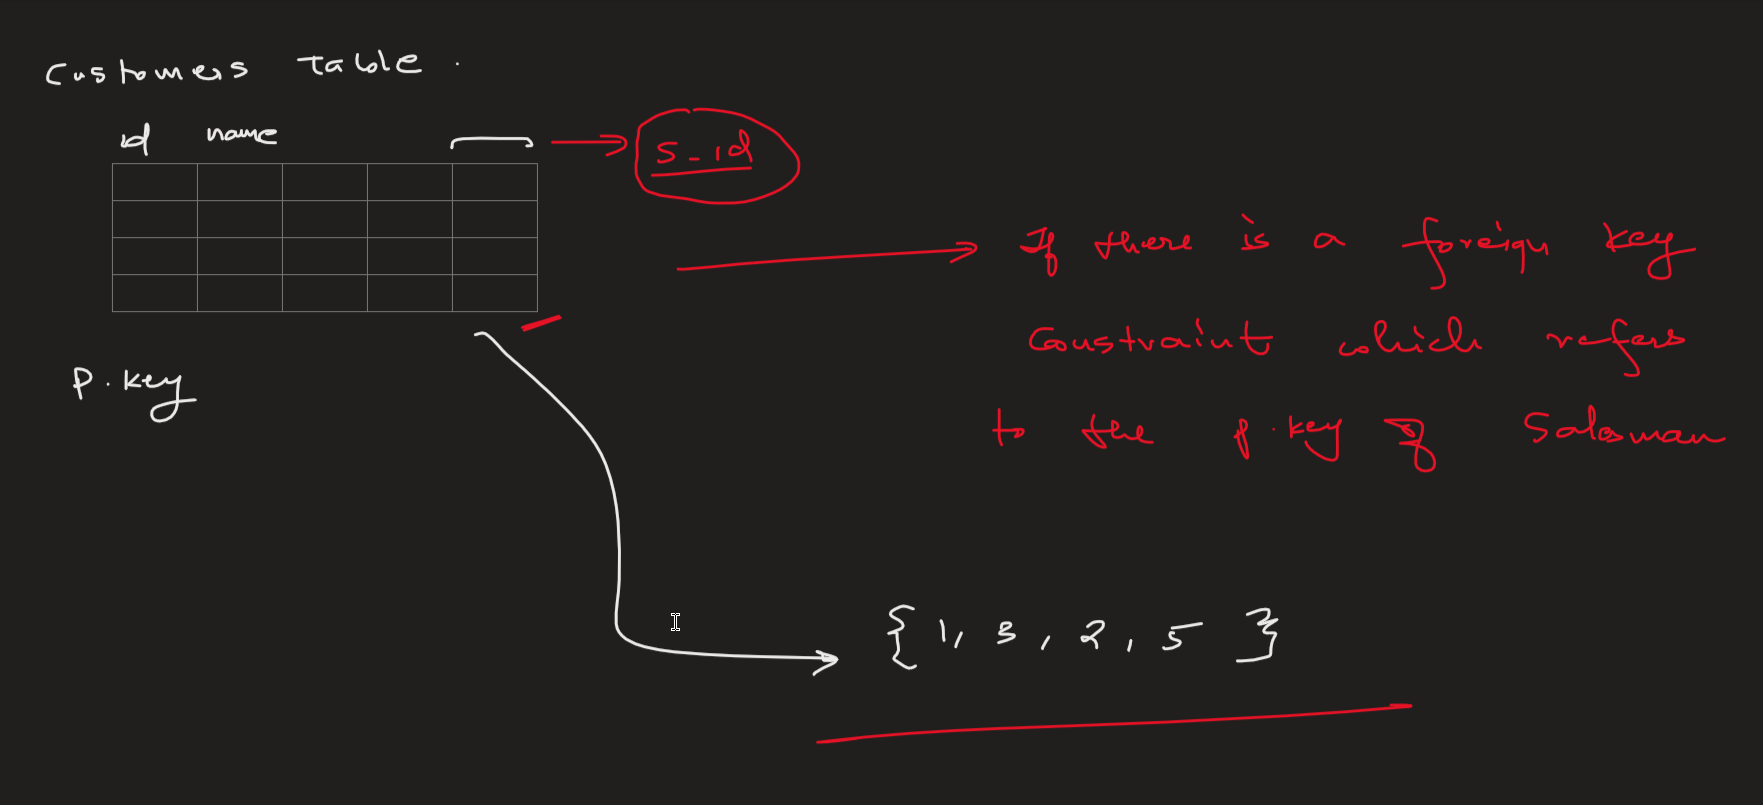 Customers Table .
id name
s_id
If there is a foreign key
Constraint which refers
to the p.key of Salesman
P.key
{ 1, 3, 2, 5 }